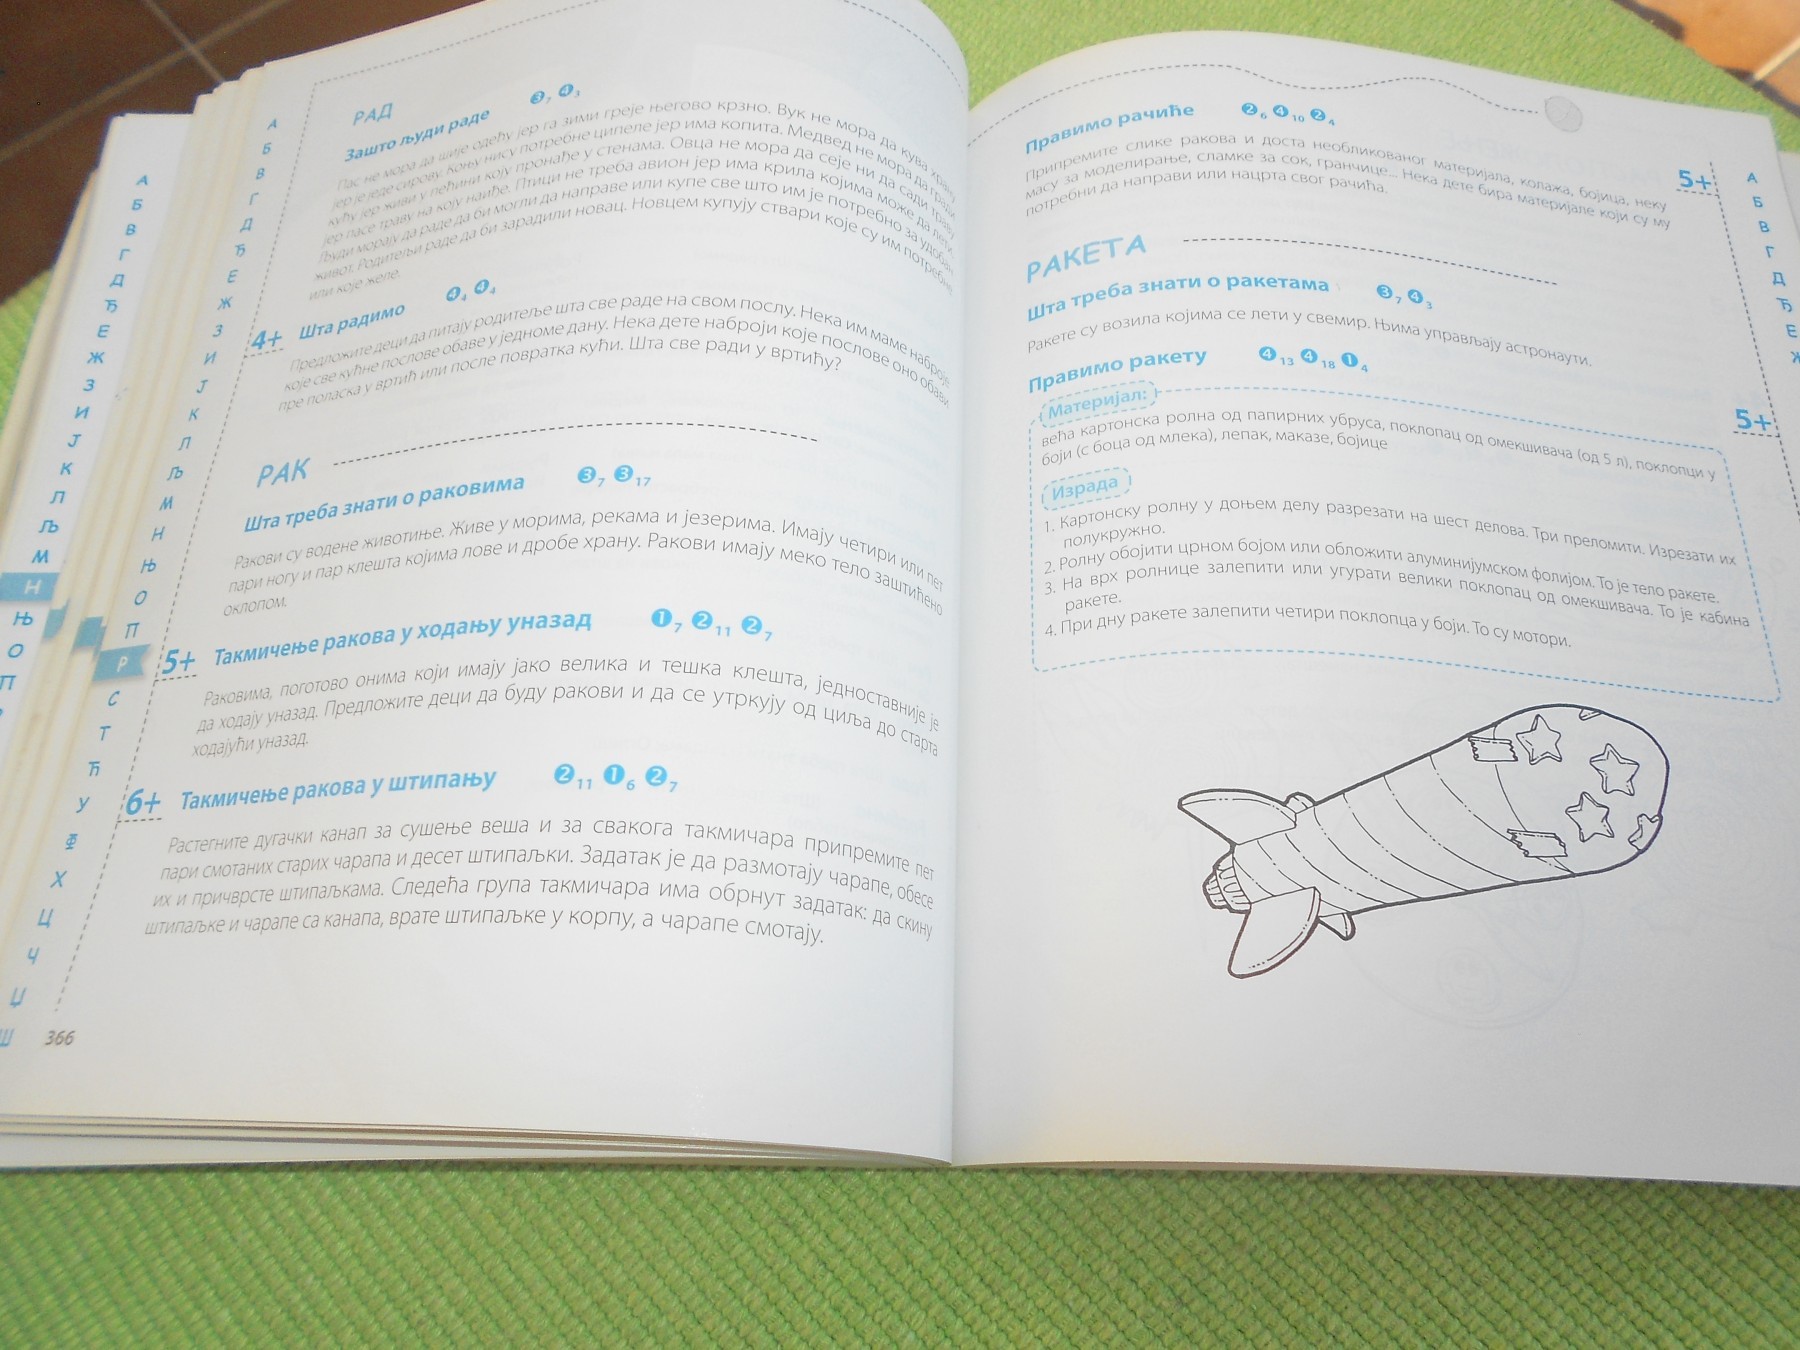 А
Б
В
Г
Д
Ђ
Е
Ж
З
И
Ј
К
Л
Љ
М
Н
Њ
О
П
А
Б
В
Г
Д
Ђ
Е
Ж
З
И
Ј
К
Л
Љ
М
Н
Њ
О
П
Р
С
Т
Ћ
У
Ф
Х
Ц
Ч
Џ
Ш
366
РАД
Зашто људи раде 3 7 4 3
Пас не мора да шије одећу јер га зими греје његово крзно. Вук не мора да кува храну
јер је једе сирову. Коњу нису потребне ципеле јер има копита. Медвед не мора да гради
кућу јер живи у пећини коју пронађе у стенама. Овца не мора да сеје ни да сади траву
јер пасе траву на коју наиђе. Птици не треба авион јер има крила којима може да лети.
Људи морају да раде да би могли да направе или купе све што им је потребно за удобан
живот. Родитељи раде да би зарадили новац. Новцем купују ствари које су им потребне
или које желе.
4+ Шта радимо 4 4 4 4
Предложите деци да питају родитеље шта све раде на свом послу. Нека им маме наброје
које све кућне послове обаве у једноме дану. Нека дете наброји које послове оно обави
пре поласка у вртић или после повратка кући. Шта све ради у вртићу?
РАК
Шта треба знати о раковима 3 7 3 17
Ракови су водене животиње. Живе у морима, рекама и језерима. Имају четири или пет
пари ногу и пар клешта којима лове и дробе храну. Ракови имају меко тело заштићено
оклопом.
5+ Такмичење ракова у ходању уназад 1 7 2 11 2 7
Раковима, поготово онима који имају јако велика и тешка клешта, једноставније је
да ходају уназад. Предложите деци да буду ракови и да се утркују од циља до старта
ходајући уназад.
6+ Такмичење ракова у штипању 2 11 1 6 2 7
Растегните дугачки канап за сушење веша и за свакога такмичара припремите пет
пари смотаних старих чарапа и десет штипаљки. Задатак је да размотају чарапе, обесе
их и причврсте штипаљкама. Следећа група такмичара има обрнут задатак: да скину
штипаљке и чарапе са канапа, врате штипаљке у корпу, а чарапе смотају.
Правимо рачиће 2 6 4 10 2 4
5+
Припремите слике ракова и доста необликованог материјала, колажа, бојица, неку
масу за моделирање, сламке за сок, гранчице... Нека дете бира материјале који су му
потребни да направи или нацрта свог рачића.
РАКЕТА
Шта треба знати о ракетама 3 7 4 3
Ракете су возила којима се лети у свемир. Њима управљају астронаути.
Правимо ракету 4 13 4 18 1 4
5+
Материјал:
већа картонска ролна од папирних убруса, поклопац од омекшивача (од 5 л), поклопци у
боји (с боца од млека), лепак, маказе, бојице
Израда
1. Картонску ролну у доњем делу разрезати на шест делова. Три преломити. Изрезати их
полукружно.
2. Ролну обојити црном бојом или обложити алуминијумском фолијом. То је тело ракете.
3. На врх ролнице залепити или угурати велики поклопац од омекшивача. То је кабина
ракете.
4. При дну ракете залепити четири поклопца у боји. То су мотори.
А
Б
В
Г
Д
Ђ
Е